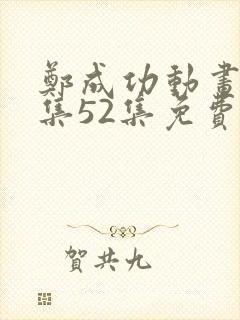 鄭成功動畫
集52集免費
賀共九